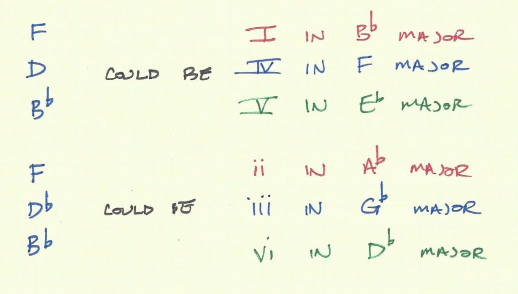 F I IN B♭ MAJOR
D COULD BE IV IN F MAJOR
B♭ V IN E♭ MAJOR
F ii IN A♭ MAJOR
D♭ COULD BE iii IN G♭ MAJOR
B♭ vi IN D♭ MAJOR